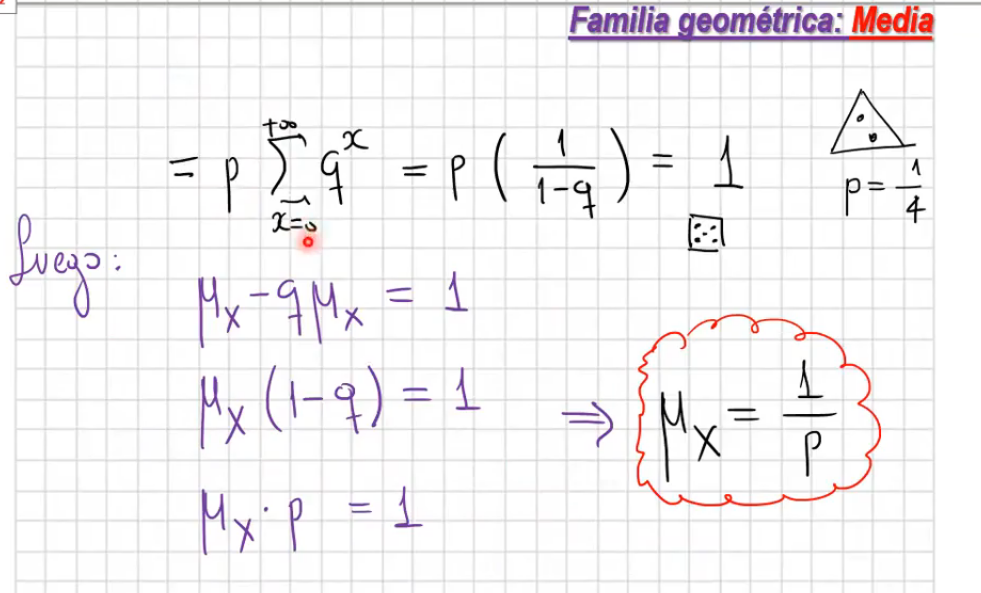 Familia geométrica: Media
= p ∑_{x=0}^{+∞} q^x = p ( 1/(1-q) ) = 1
p = 1/4
Luego:
μ_X - q μ_X = 1
μ_X (1 - q) = 1 ⇒ μ_X = 1/p
μ_X · p = 1